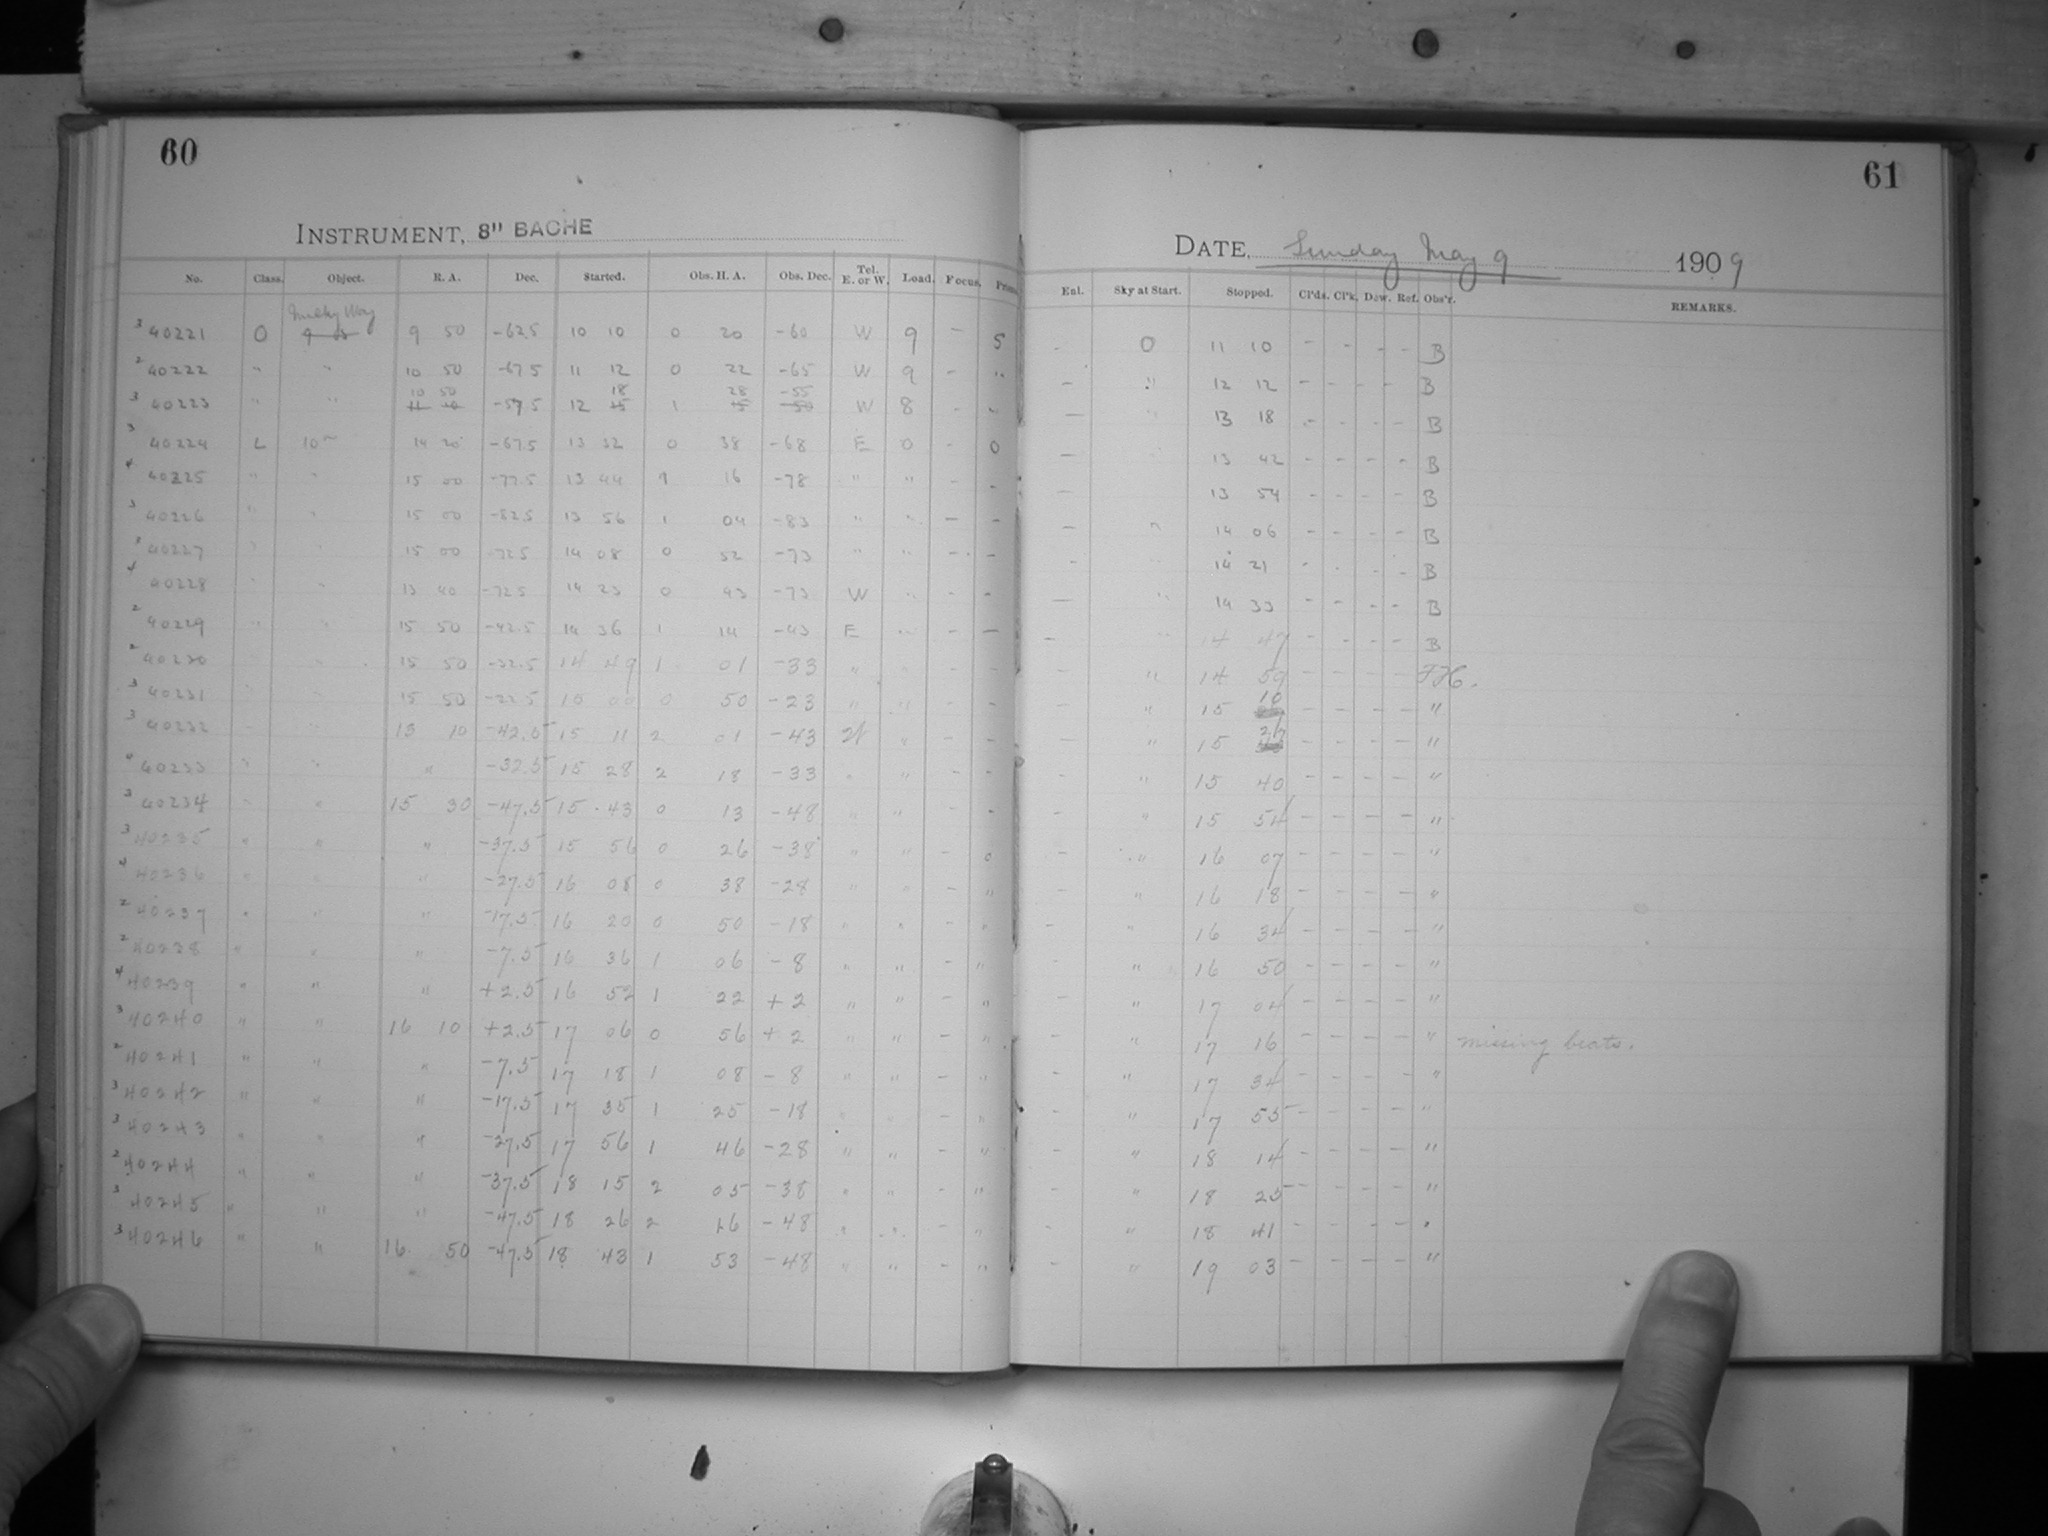 60
INSTRUMENT, 8" BACHE
No. Class. Object. R. A. Dec. Started. Obs. H. A. Obs. Dec. Tel. E. or W. Load. Focus.
Milky Way
3 40221 O 9 50 -62.5 10 10 0 20 -60 W 9 - S
2 40222 " " 10 50 -67.5 11 12 0 22 -65 W 9 - "
10 50 18 28 -55
3 40223 " " -57.5 12 15 1 15 -50 W 8 - -
3 40224 L 10m 14 20 -67.5 13 32 0 38 -68 E 0 - 0
4 40225 " " 15 00 -77.5 13 44 1 16 -78 " " - -
3 40226 " " 15 00 -82.5 13 56 1 04 -83 " " - -
3 40227 " " 15 00 -72.5 14 08 0 52 -73 " " - -
4 40228 " " 13 40 -72.5 14 23 0 43 -73 W " - -
2 40229 " " 15 50 -42.5 14 36 1 14 -43 E " - -
2 40230 " " 15 50 -32.5 14 49 1 01 -33 " " - -
3 40231 " " 15 50 -22.5 15 00 0 50 -23 " " - -
3 40232 " " 13 10 -42.5 15 11 2 01 -43 W " - -
40233 " " " -32.5 15 28 2 18 -33 " " - -
3 40234 " " 15 30 -47.5 15 43 0 13 -48 " " - -
3 40235 " " " -37.5 15 56 0 26 -38 " " - 0
40236 " " " -27.5 16 08 0 38 -28 " " - "
2 40237 " " " -17.5 16 20 0 50 -18 " " - "
2 40238 " " " -7.5 16 36 1 06 -8 " " - "
4 40239 " " " +2.5 16 52 1 22 +2 " " - "
3 40240 " " 16 10 +2.5 17 06 0 56 +2 " " - "
2 40241 " " " -7.5 17 18 1 08 -8 " " - "
3 40242 " " " -17.5 17 35 1 25 -18 " " - "
3 40243 " " " -27.5 17 56 1 46 -28 " " - "
2 40244 " " " -37.5 18 15 2 05 -38 " " - "
3 40245 " " " -47.5 18 26 2 16 -48 " " - "
3 40246 " " 16 50 -47.5 18 43 1 53 -48 " " - "
61
DATE, Sunday May 9 1909
Enl. Sky at Start. Stopped. Cl'ds. Cl'k. Dew. Ref. Obs'r. REMARKS.
- O 11 10 - - - - B
- " 12 12 - - - - B
- " 13 18 - - - - B
- 13 42 - - - - B
- 13 54 - - - - B
- " 14 06 - - - - B
- 14 21 - - - - B
- " 14 33 - - - - B
- " 14 47 - - - - B
- " 14 59 - - - -
- " 15 10 - - - - "
- " 15 - - - - "
- " 15 40 - - - - "
- " 15 54 - - - - "
- " 16 07 - - - - "
- " 16 18 - - - - "
- " 16 34 - - - - "
- " 16 50 - - - - "
- " 17 04 - - - - "
- " 17 16 - - - - " missing beats.
- " 17 34 - - - - "
- " 17 55 - - - - "
- " 18 14 - - - - "
- " 18 25 - - - - "
- " 18 41 - - - - "
- " 19 03 - - - - "